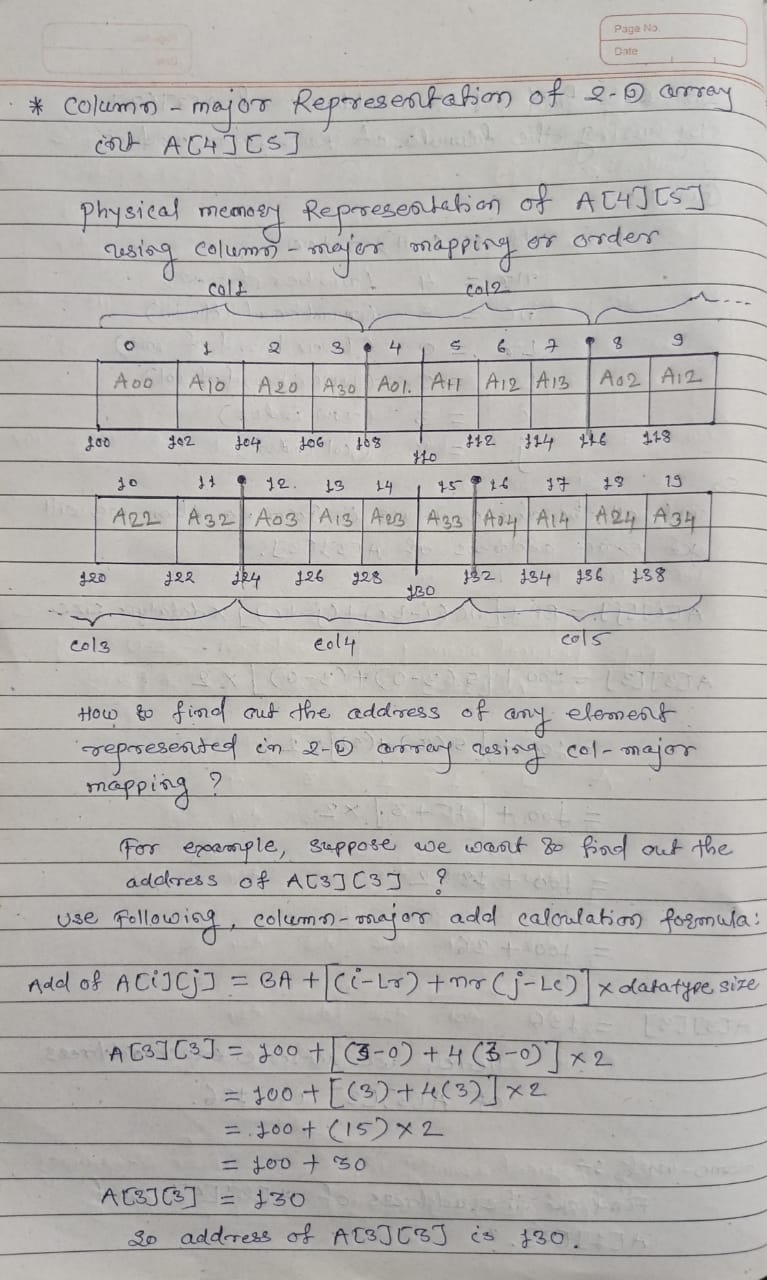 Page No.
Date
* Column-major Representation of 2-D array
int A[4][5]
Physical memory Representation of A[4][5]
using column-major mapping or order
col1 col2 ...
0 1 2 3 4 5 6 7 8 9
A00 A10 A20 A30 A01. A11 A12 A13 A02 A12
100 102 104 106 108 110 112 114 116 118
10 11 12. 13 14 15 16 17 18 19
A22 A32 A03 A13 A23 A33 A04 A14 A24 A34
120 122 124 126 128 130 132 134 136 138
col3 col4 col5
How to find out the address of any element
represented in 2-D array using col-major
mapping ?
For example, suppose we want to find out the
address of A[3][3] ?
Use Following, column-major add calculation formula:
Add of A[i][j] = BA + [(i-Lr) + nr(j-Lc)] x datatype size
A[3][3] = 100 + [(3-0) + 4(3-0)] x 2
= 100 + [(3) + 4(3)] x 2
= 100 + (15) x 2
= 100 + 30
A[3][3] = 130
So address of A[3][3] is 130.